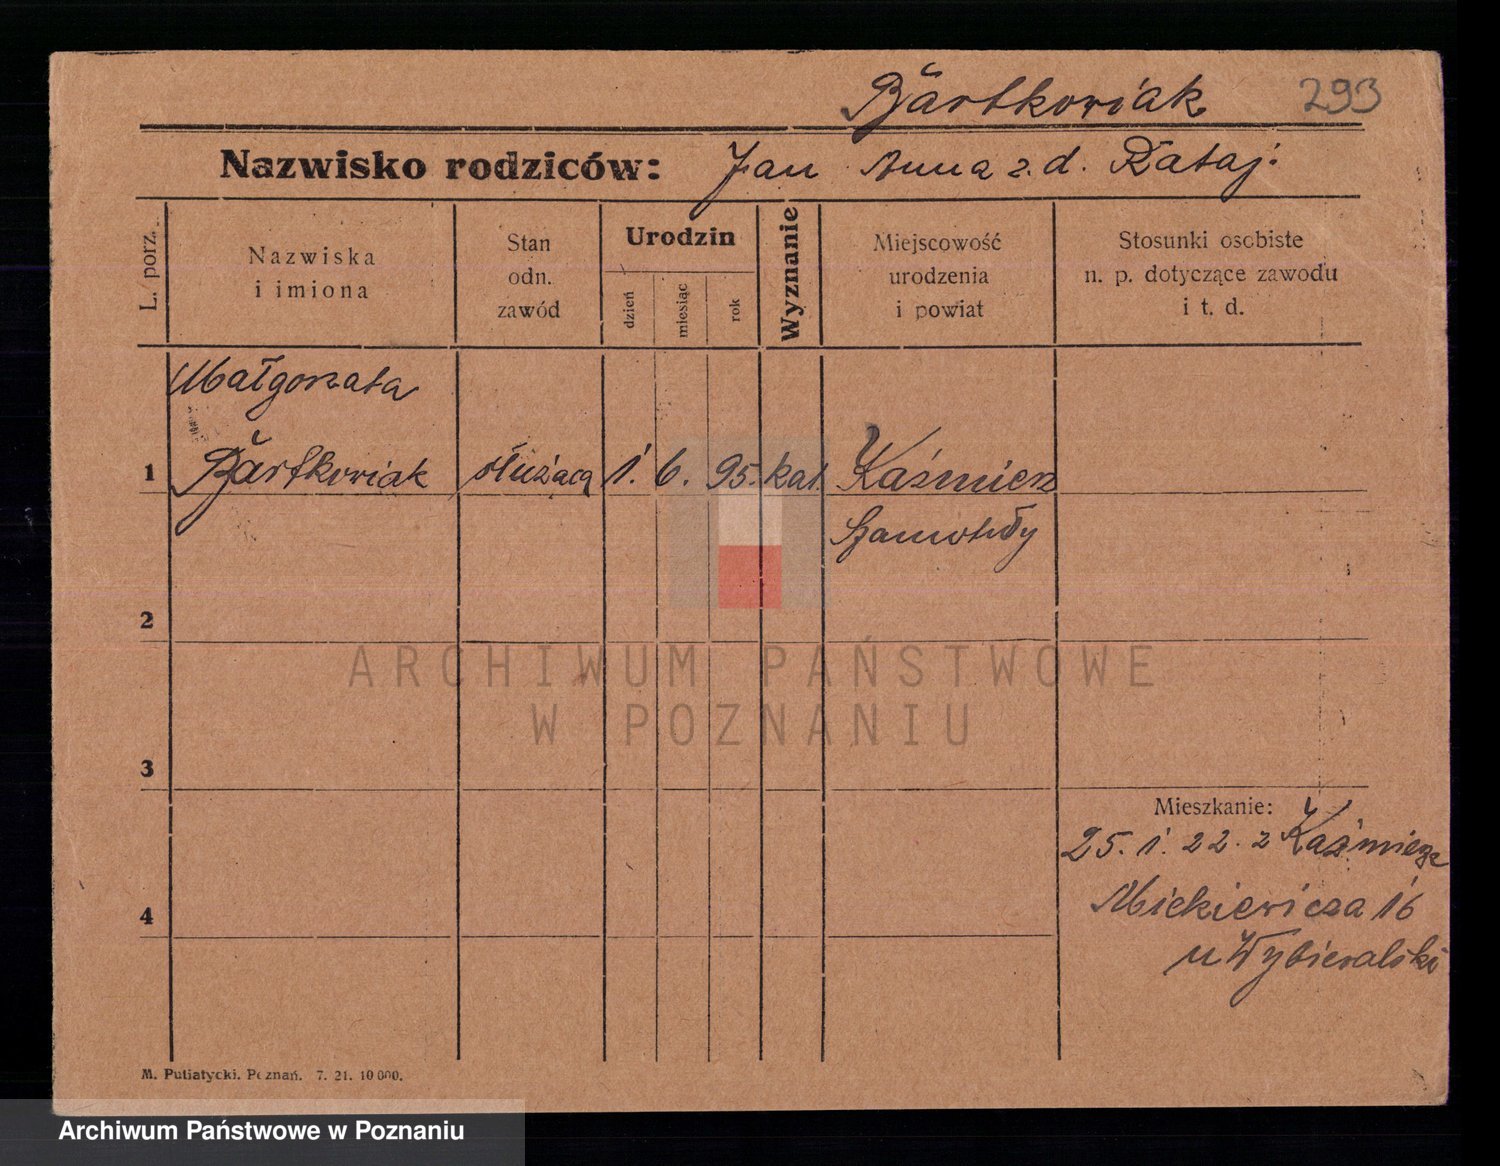 Bartkowiak 293
Nazwisko rodziców: Jan Anna z. d. Rataj.
L. porz.
Nazwiska
i imiona
Stan
odn.
zawód
Urodzin
dzień
miesiąc
rok
Wyznanie
Miejscowość
urodzenia
i powiat
Stosunki osobiste
n. p. dotyczące zawodu
i t. d.
Małgorzata
1 Bartkowiak służąca 1. 6. 95. kat. Kaźmierz
Szamotuły
2
ARCHIWUM PAŃSTWOWE
W POZNANIU
3
Mieszkanie:
25. 1. 22. z Kaźmierz
4 Mickiewicza 16
u Wybieralski
M. Putiatycki. Poznań. 7. 21. 10 000.
Archiwum Państwowe w Poznaniu